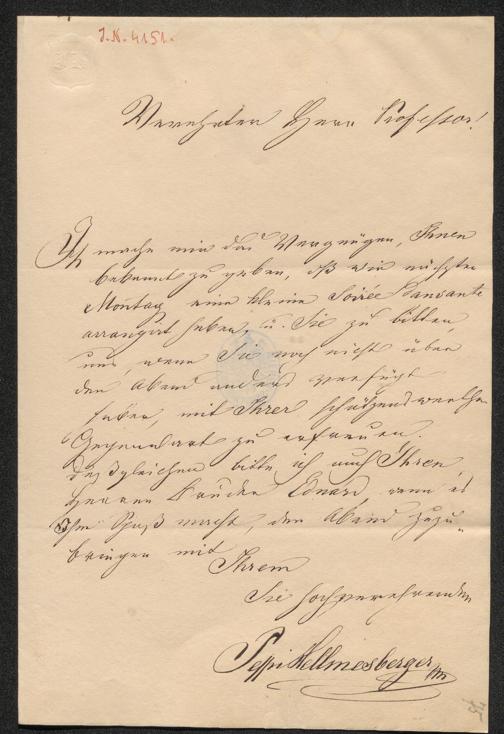 J.N. 4151.
Verehrter Herr Professor!
Ich mache mir das Vergnügen, Ihnen
bekannt zu geben, daß wir nächsten
Montag eine kleine Soirée dansante
arrangirt haben, u. Sie zu bitten,
uns, wenn Sie noch nicht über
den Abend anders verfügt
haben, mit Ihrer schätzenswerthen
Gegenwart zu erfreuen.
Deßgleichen bitte ich auch Ihren
Herren Bruder Eduard, wenn es
Ihm Spaß macht, den Abend zuzu-
bringen mit
Ihrem
Sie hochverehrenden
Peppi Hellmesberger
75